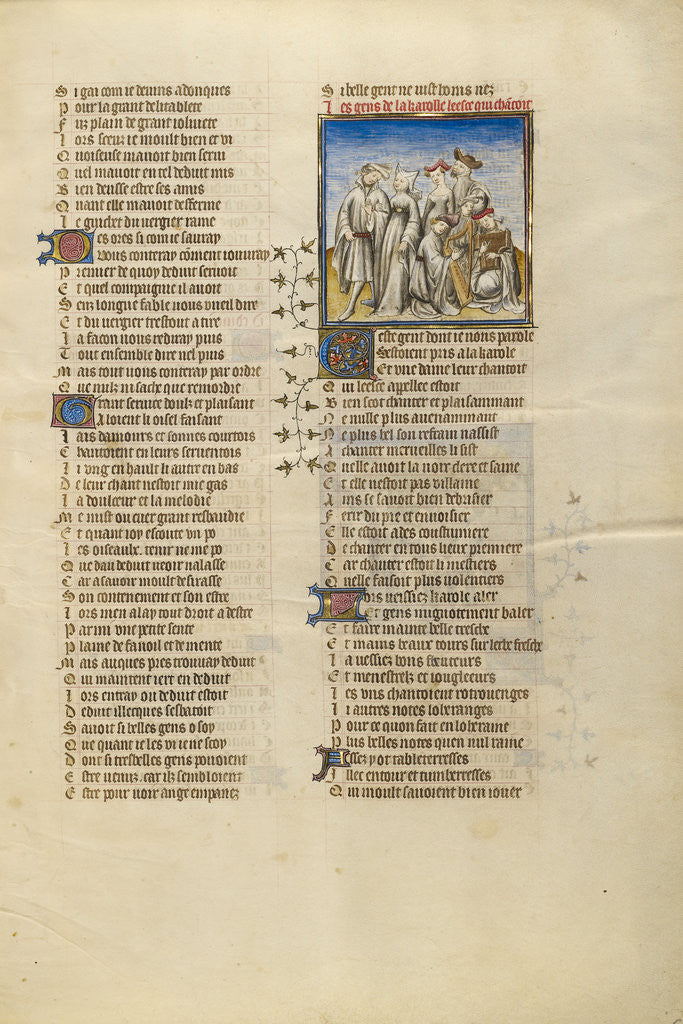 Si gai com ie devins adonques
Pour la grant delitablete
Fuz plain de grant iolivete
Lors sceuz ie moult bien et vi
Quoiseuse mavoit bien servi
Quel mavoit en tel deduit mis
Bien deusse estre ses amis
Quant elle mavoit deffermé
Le guichet du vergier ramé
Des ores si com ie sauray
Vous conteray cōment iouvray
Premier de quoy deduit servoit
Et quel compaignie il avoit
Senz longue fable vous vueil dire
Et du vergier trestout a tire
La facon vous rediray puis
Tout ensemble dire nel puis
Mais tout vous conteray par ordre
Que nulz ni sache que remordre
Grant service doulz et plaisant
Aloient li oisel faisant
Lais damours et sonnes courtois
Chantoient en leurs serventois
Li vng en hault li autre en bas
De leur chant nestoit mie gas
La doulceur et la melodie
Me mist ou cuer grant resbaudie
Et quant ioy escoute vn po
Les oiseaulx tenir ne me po
Que dan deduit veoir nalasse
Car a savoir moult desirasse
Son contenement et son estre
Lors men alay tout droit a destre
Par mi vne petite sente
Plaine de fanoil et de mente
Mais auques pres trouvay deduit
Qui maintent iert en deduit
Lors entray ou deduit estoit
Deduit illecques sesbatoit
Savoit si belles gens o soy
Que quant ie les vi ie ne scoy
Dont si tresbelles gens povoient
Estre venuz car ilz sembloient
Estre pour voir ange empanez
Si belle gent ne vist homs nez
Les gens de la karolle leesce qui chātoit
Ceste gent dont ie vous parole
Sestoient pris a la karole
Et vne dame leur chantoit
Qui leesce appellee estoit
Bien scot chanter et plaisammant
Ne nulle plus avenammant
Ne plus bel son refrain nassist
A chanter merveilles li sist
Quelle avoit la voix clere et saine
Et elle nestoit pas villaine
Ains se savoit bien debrisier
Ferir du pie et envoisier
Elle estoit ades coustumiere
De chanter en tous lieux premiere
Car chanter estoit li mestiers
Quelle faisoit plus volentiers
Lors veissiez karole aler
Et gens mignotement baler
Et faire mainte belle tresche
Et mains beaux tours sur lerbe fresche
La veissiez vous fleuteurs
Et menestrelz et iougleeurs
Les vns chantoient rotrouenges
Li autres notes loheranges
Pour ce quon fait en loheraine
Plus belles notes quen nul raine
Assez y ot tableterresses
Illec entour et tumberresses
Qui moult savoient bien iouer